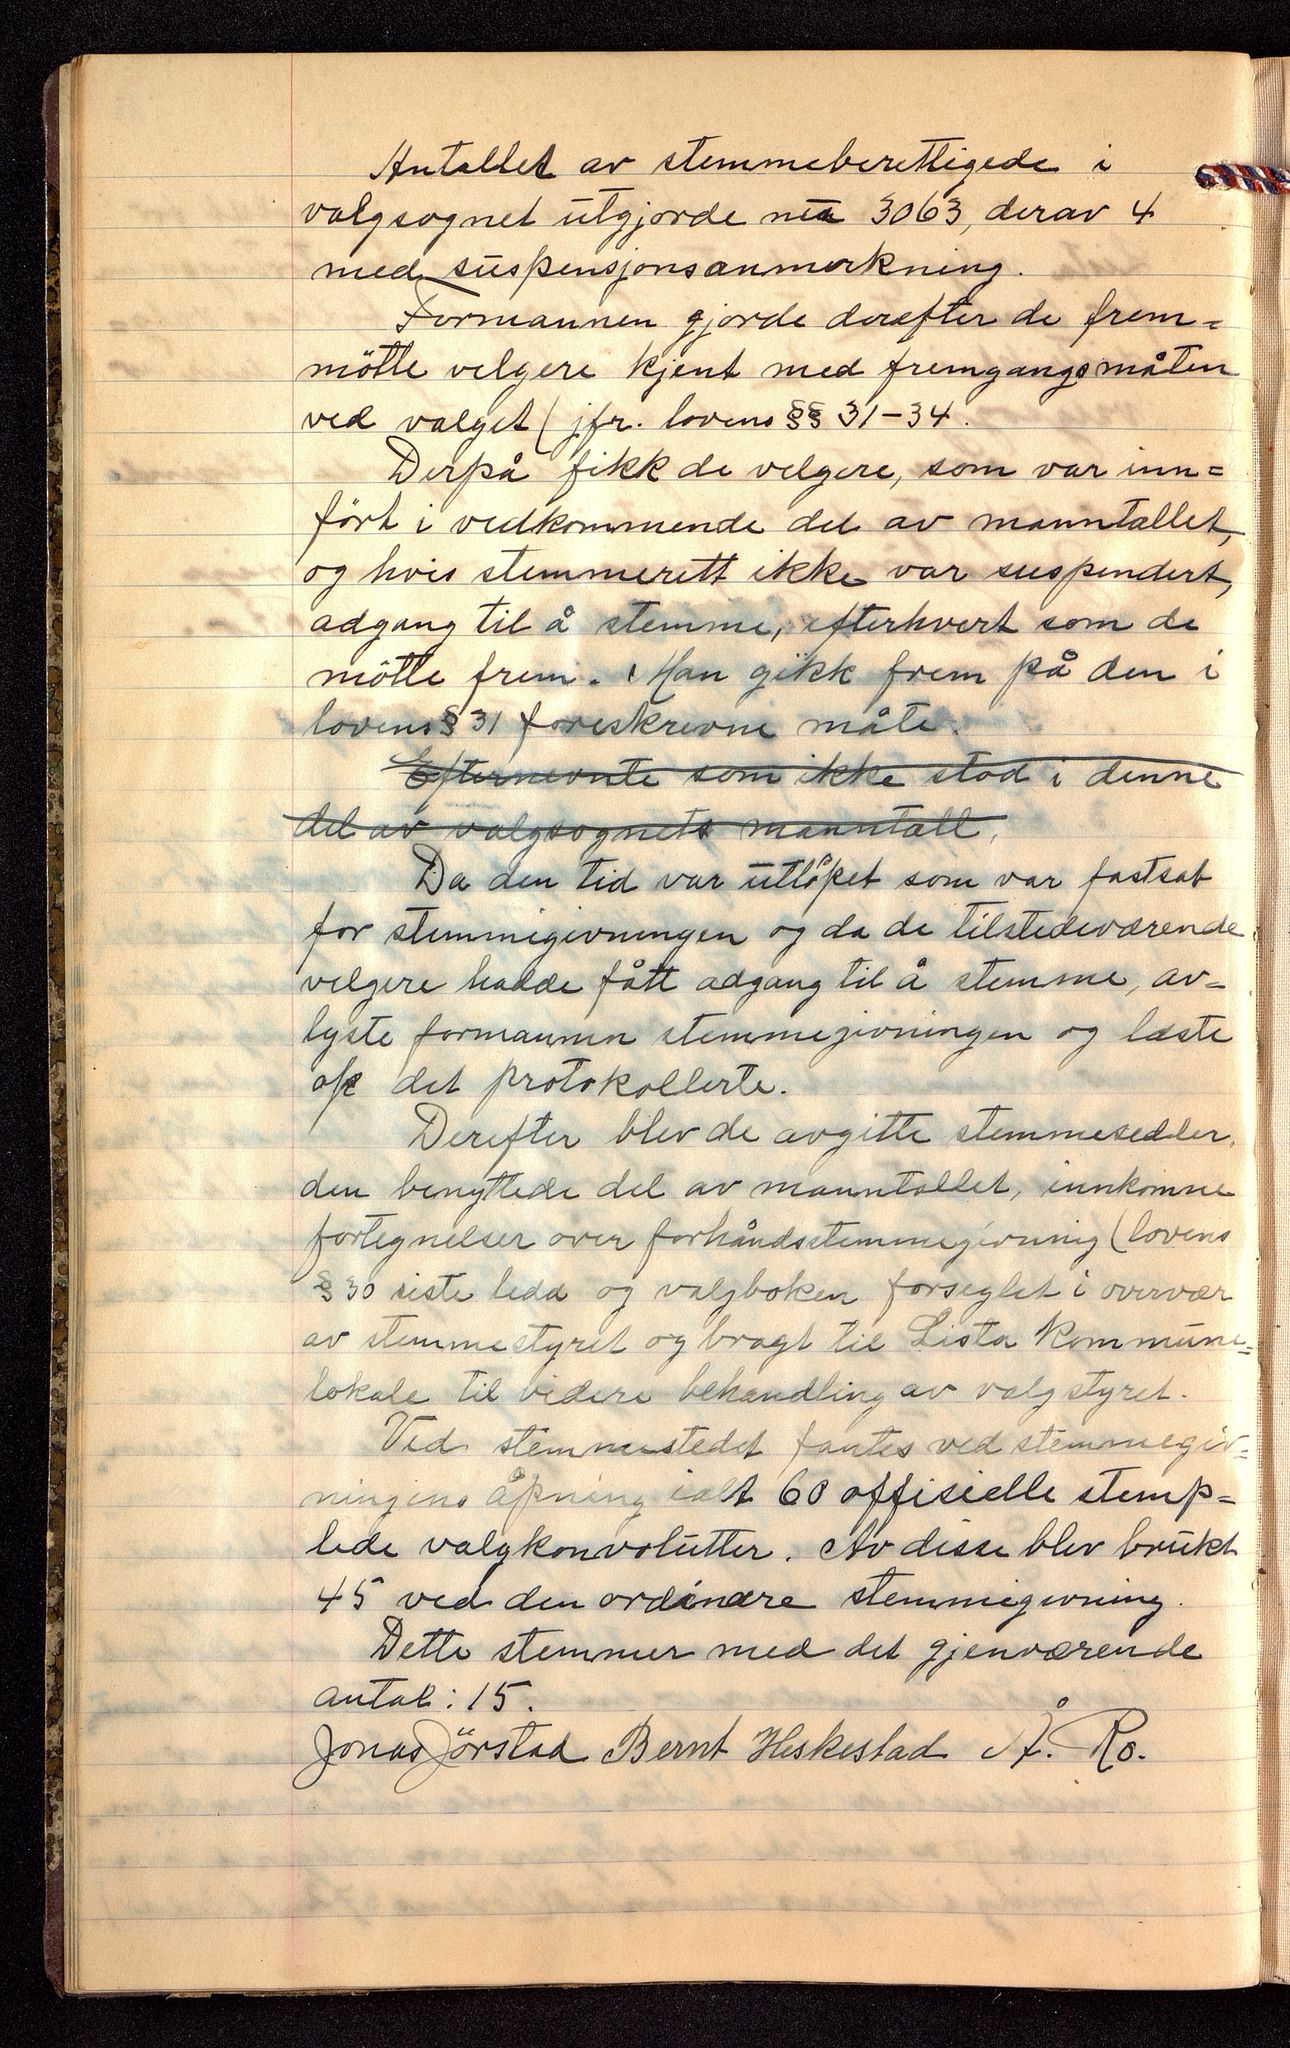 Antallet av stemmeberettigede i
valgsognet utgjorde nu 3063, derav 4
med suspensjonsanmerkning.
Formannen gjorde derefter de frem=
møtte velgere kjent med fremgangsmåten
ved valget (jfr. lovens §§ 31-34.
Derpå fikk de velgere, som var inn=
ført i vedkommende del av manntallet,
og hvis stemmerett ikke var suspendert,
adgang til å stemme, efterhvert som de
møtte frem. Man gikk frem på den i
lovens § 31 foreskrevne måte.
Efternevnte som ikke stod i denne
del av valgsognets manntall.
Da den tid var utløpet som var fastsat
for stemmegivningen og da de tilstedeværende
velgere hadde fått adgang til å stemme, av=
lyste formannen stemmegivningen og læste
op det protokollerte.
Derefter blev de avgitte stemmesedler,
den benyttede del av manntallet, innkomne
fortegnelser over forhåndsstemmegivning (lovens
§ 30 siste ledd og valgboken forseglet i overvær
av stemmestyret og bragt til Lista kommune=
lokale til videre behandling av valgstyret.
Ved stemmestedet fantes ved stemmegiv=
ningens åpning ialt 60 offisielle stemp=
lede valgkonvolutter. Av disse blev brukt
45 ved den ordinære stemmegivning.
Dette stemmer med det gjenværende
antal: 15.
Jonas Jörstad Bernt Heskestad Å. Ro.